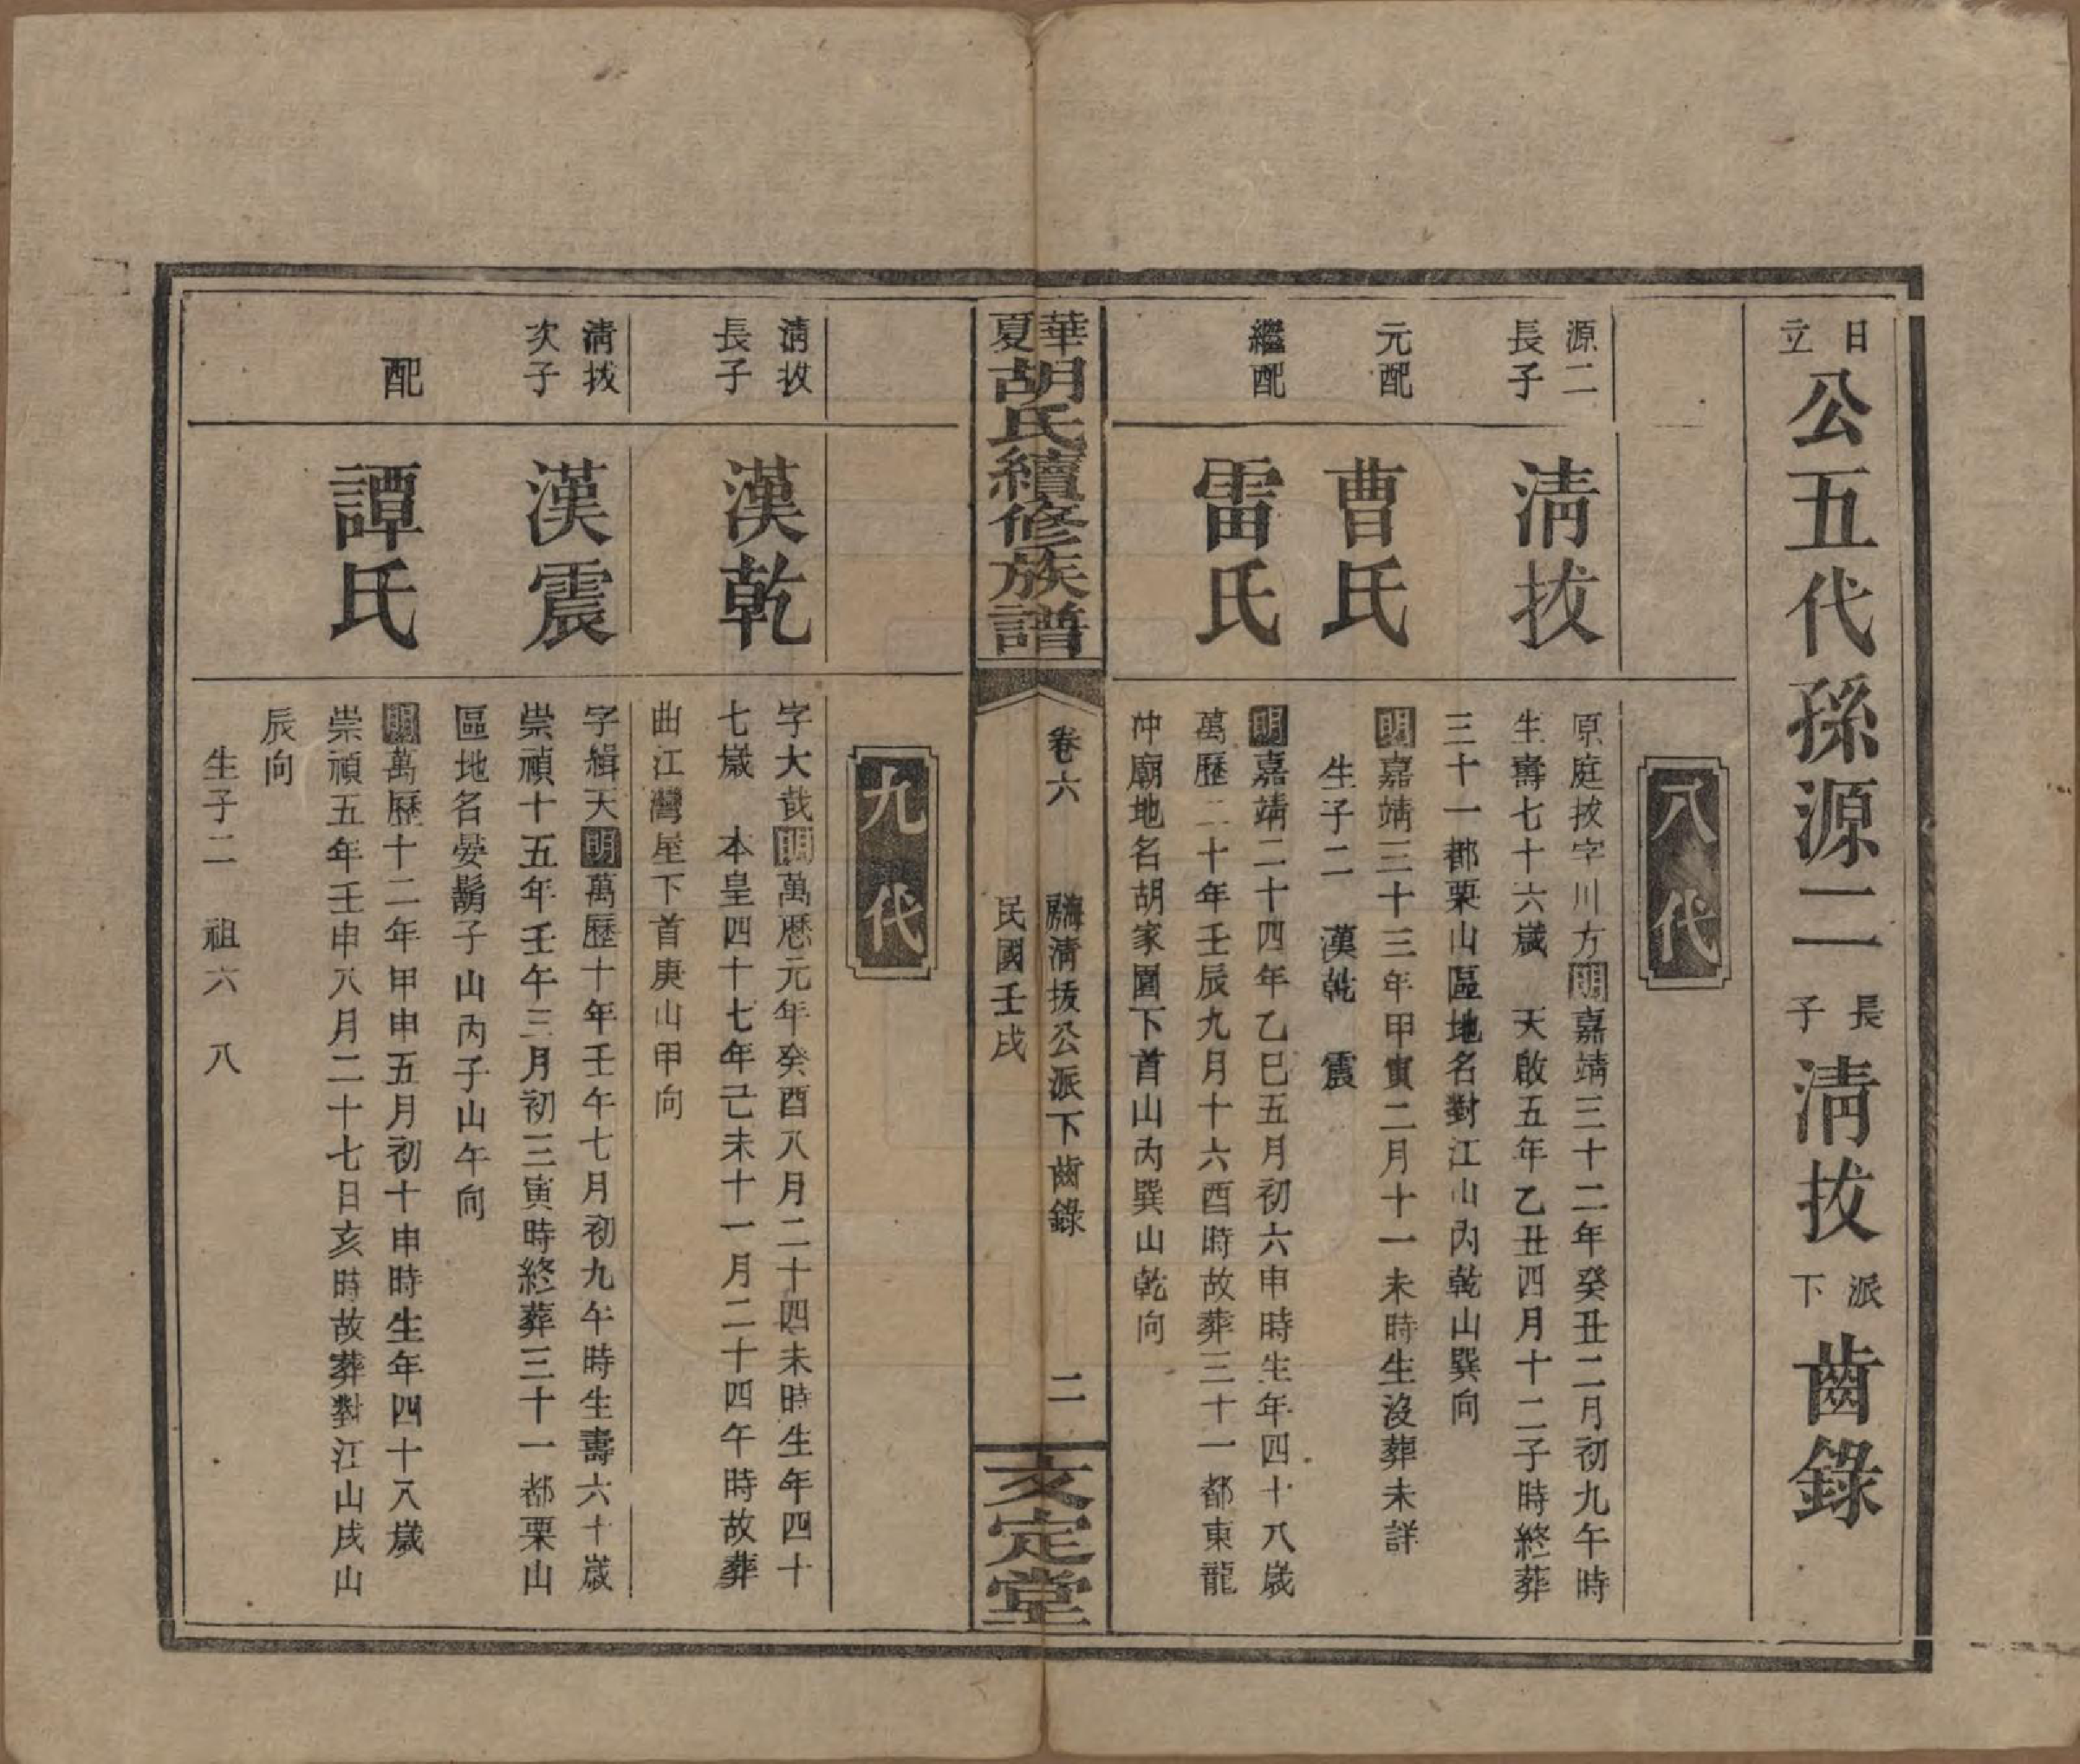 日立公五代孫源二長子淸拔派下齒錄
八代
源二長子
淸拔
原庭拔字川方明嘉靖三十二年癸丑二月初九午時
生壽七十六歲 天啟五年乙丑四月十二子時終葬
三十一都栗山區地名對江山內乾山巽向
元配
曹氏
明嘉靖三十三年甲寅二月十一未時生沒葬未詳
生子二 漢乾 震
繼配
雷氏
明嘉靖二十四年乙巳五月初六申時生年四十八歲
萬歷二十年壬辰九月十六酉時故葬三十一都東龍
冲廟地名胡家園下首山內巽山乾向
華夏胡氏續修族譜
卷六
淸拔公派下齒錄
民國壬戌
二
文定堂
九代
淸拔長子
漢乾
字大哉明萬歷元年癸酉八月二十四未時生年四十
七歲 本皇四十七年己未十一月二十四午時故葬
曲江灣屋下首庚山甲向
淸拔次子
漢震
字緝天明萬歷十年壬午七月初九午時生壽六十歲
崇禎十五年壬午三月初三寅時終葬三十一都栗山
區地名晏鬍子山內子山午向
配
譚氏
明萬歷十二年甲申五月初十申時生年四十八歲
崇禎五年壬申八月二十七日亥時故葬對江山戌山
辰向
生子二 祖六 八